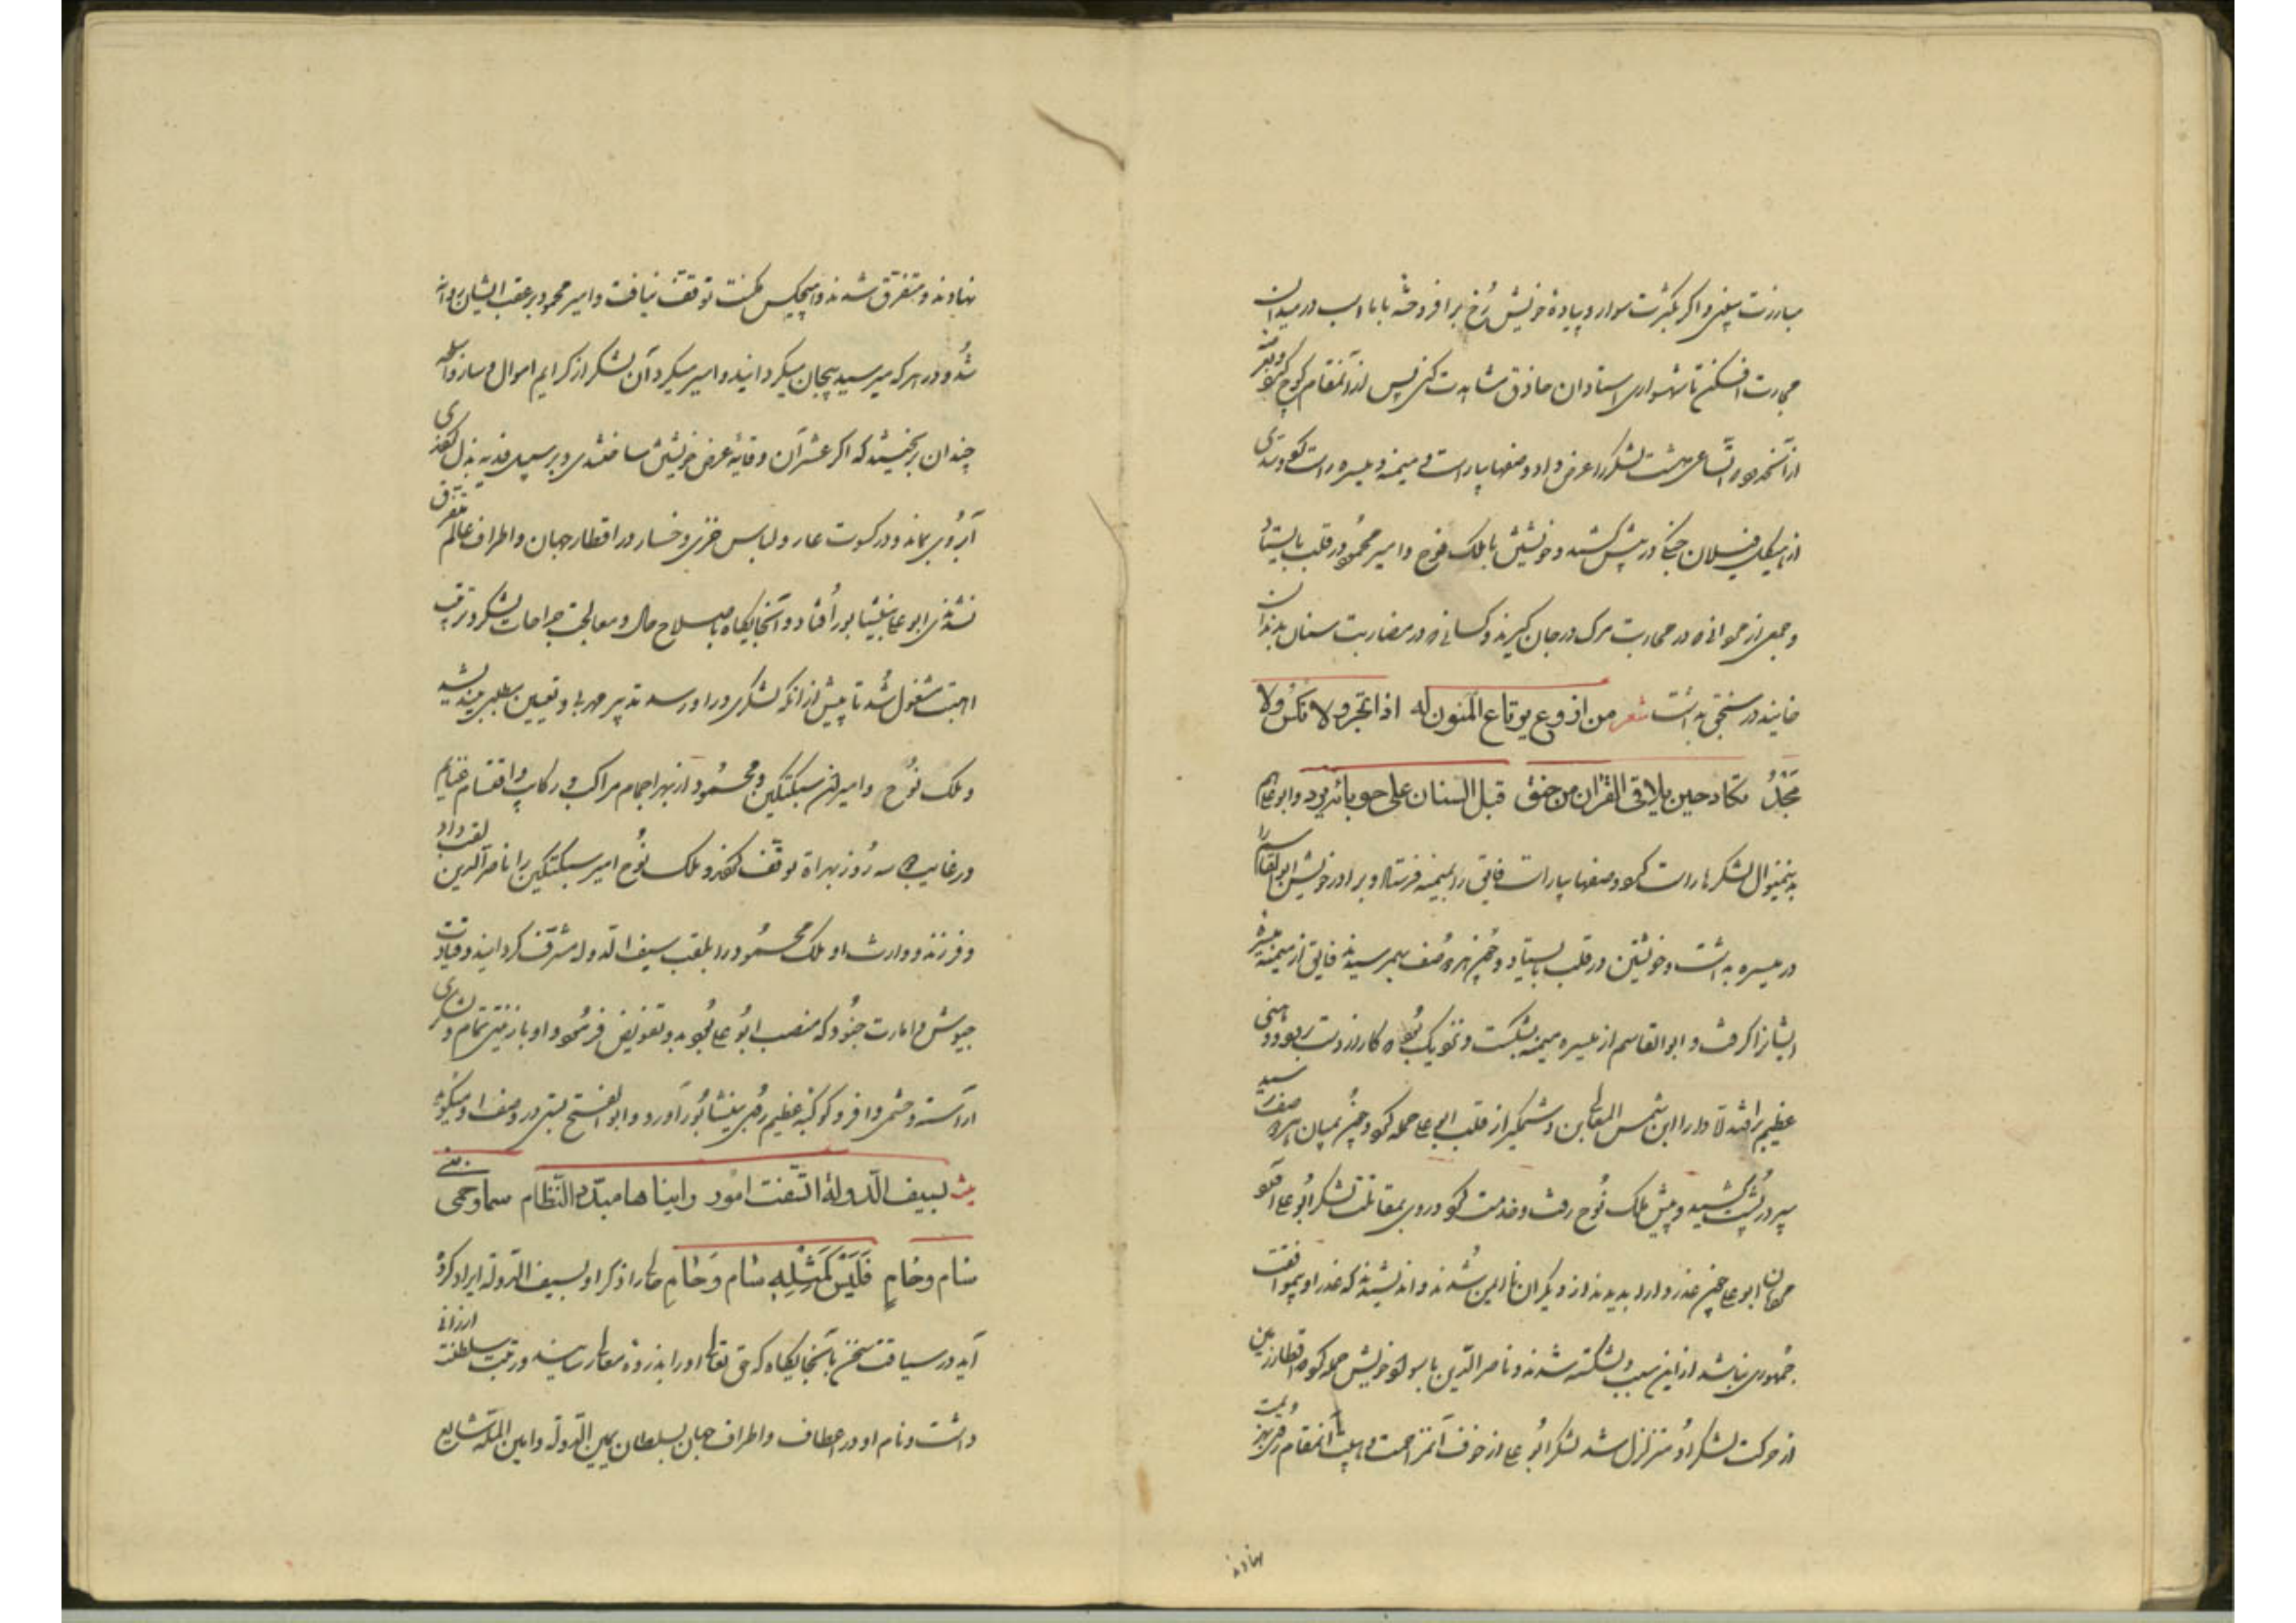 مبارزت پیلفنی و اکر بکثرت سوار و پیاده خویش رُخ برافروخته با ما اسب در میدان
محاربت افکن تا شهسواری استادان حاذق مشاهدت کنی پس از آنمقام کوچ کرد و بقریه
از آنحدود آنساعی هشت لشکر را عرض داد و صفها بیاراست و میمنه و میسره راست کرد و سدی
از هیکل فیلان جنکی در پیش کشید و خویشتن با ملک نوح و امیر محمود در قلب بایستاد
و جمعی از جوانان در محاربت مرک در جان کیرند و کسانی در مضاربت سنان بدندان
خایند در سنجق بداشت شعر من اذرع یوقاع المنون له اذا تجرد لا نکس ولا
جَحْدُ یکاد حین یلاقی القران من حنق قبل السنان علی حوبائه یرد و ابو علی هم
بدینمنوال لشکرها راست کرد و صفها بیاراست فایق را بمیمنه فرستاد و برادر خویش ابوالقاسم را
در میسره بداشت و خویشتن در قلب بایستاد و چون هر دو صف بهم رسیدند فایق از میمنه میسره
ایشان را کرفت و ابوالقاسم از میسره میمنه بشکست و نزدیک بود که کار از دست برود و وهنی
عظیم افتد دارا ابن شمس المعالی بن وشمکیر از قلب ابی علی حمله کرد و چون بمیان هر دو صف رسید
سپر در پشت کشید و پیش ملک نوح رفت و خدمت کرد و روی بمقاتلت لشکر ابو علی آورد
مهان ابو علی چون غدر دارا بدیدند از دیکران نا ایمن شدند و اندیشیدند که غدر او بموافقت
جمهوری نباشد از این سبب دلشکسته شدند و ناصر الدین با سواد خویش حمله کرد که اقطار زمین
از حرکت لشکر او متزلزل شد لشکر ابو علی از خوف آنمزاحمت و هیبت آنمقام روی بهزیمت
نهادند
نهادند و متفرق شدند و هیچکس مکنت توقف نیافت و امیر محمود بر عقب ایشان روانه
شد و در هر که میرسید بیجان میکردانید و اسیر میکرد آن لشکر از کرایم اموال و ساز و اسلحه
چندان بریختند که اکر عشر آن وقایهٔ عرض خویشتن ساختندی و بر سبیل فدیه بذل کردندی
آبروی بماندی و در کسوت عار و لباس خزی و خسار در اقطار جهان و اطراف عالم متفرق
نشدندی ابو علی بنیشابور افتاد و آنجایکاه باصلاح حال و معالجت جراحات لشکر و ترتیب
اهبت مشغول شد تا پیش از آنکه لشکری در او رسد تدبیر مهربی و تعیین مطلبی میندیشید
و ملک نوح و امیر سبکتکین و محمود از بهر اجمام مراکب و رکاب و اقتسام غنایم
و رغایب سه روز بهراة توقف کردند و ملک نوح امیر سبکتکین را ناصر الدین لقب داد
و فرزند و وارث او ملک محمود را بلقب سیف الدوله مشرف کردانید و قیادت
جیوش و امارت جنود که منصب ابو علی بود بدو تفویض فرمود و او با زینتی تمام و لشکری
آراسته و حشمی وافر و کوکبهٔ عظیم روی بنیشابور آورد و ابو الفتح بستی در وصف او میکوید
بسیف الدولة اتسقت امور رأیناها مبدد النظام سما و حمی بنی
سام و حام فَلَیْسَ کَمِثْلِهِ سَام وَ حَامِ حالی را ذکر او بسیف الدوله ایراد کرده
آید در سیاقت سخن بآنجایکاه که حق تعالی او را بذروهٔ معالی رسانید و رتبت سلطنت ارزانی
داشت و نام او در اعطاف و اطراف جهان بسلطان یمین الدوله و امین المله شایع